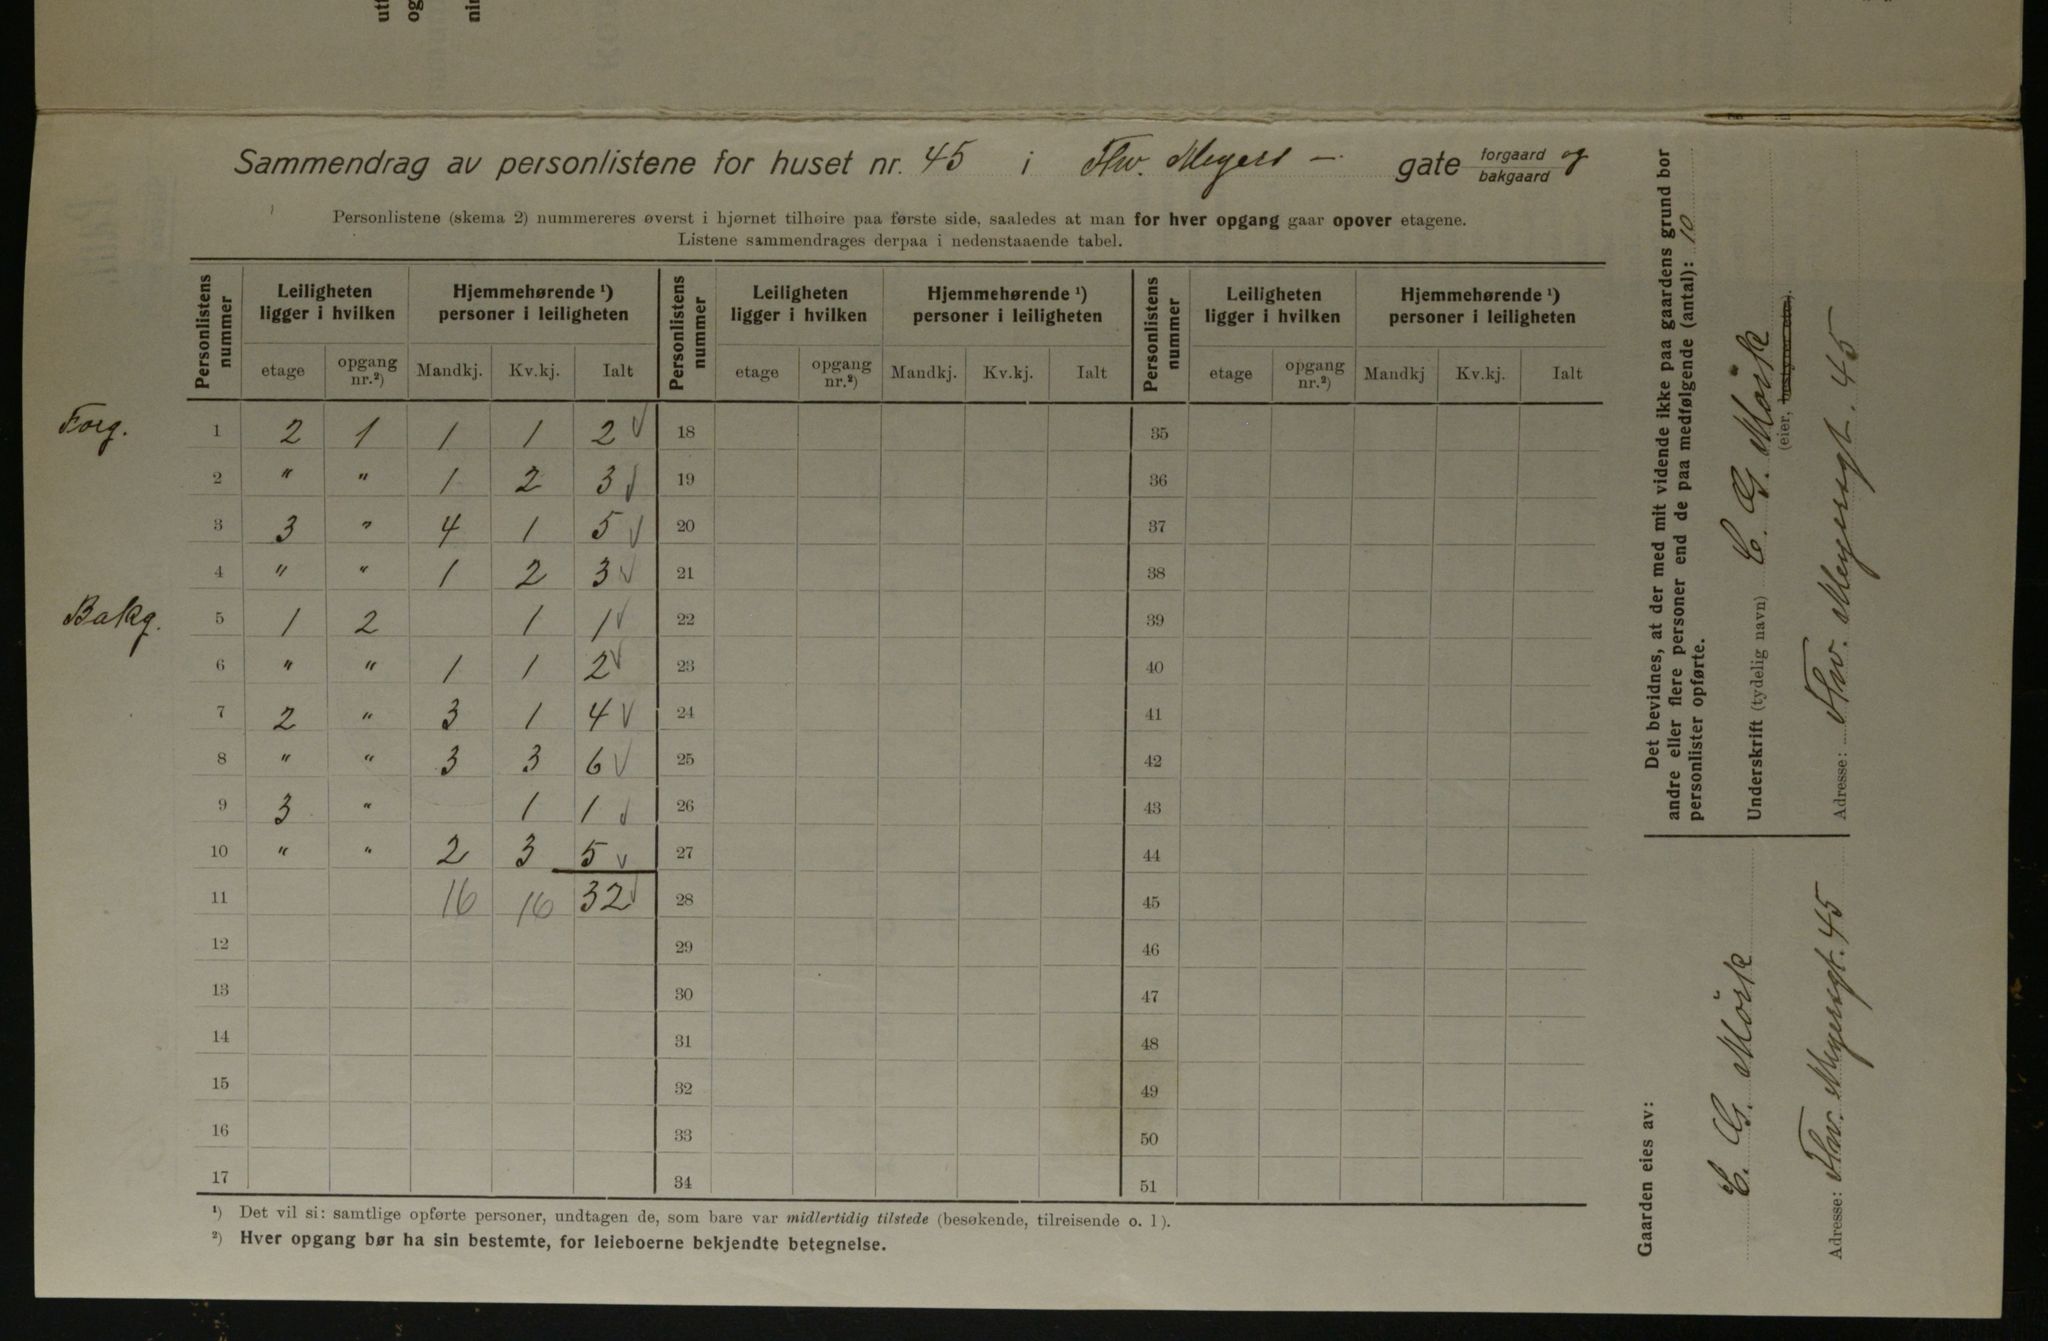 Sammendrag av personlistene for huset nr. 45 i Thv. Meyers — gate forgaard og bakgaard
Personlistene (skema 2) nummereres øverst i hjørnet tilhøire paa første side, saaledes at man for hver opgang gaar opover etagene.
Listene sammendrages derpaa i nedenstaaende tabel.
Personlistens nummer | Leiligheten ligger i hvilken | Hjemmehørende ¹) personer i leiligheten | Personlistens nummer | Leiligheten ligger i hvilken | Hjemmehørende ¹) personer i leiligheten | Personlistens nummer | Leiligheten ligger i hvilken | Hjemmehørende ¹) personer i leiligheten
etage | opgang nr.²) | Mandkj. | Kv.kj. | Ialt | etage | opgang nr.²) | Mandkj. | Kv.kj. | Ialt | etage | opgang nr.²) | Mandkj | Kv.kj. | Ialt
Forg. 1 2 1 1 1 2 √ 18 35
2 " " 1 2 3 √ 19 36
3 3 " 4 1 5 √ 20 37
4 " " 1 2 3 √ 21 38
Bakg. 5 1 2 1 1 √ 22 39
6 " " 1 1 2 √ 23 40
7 2 " 3 1 4 √ 24 41
8 " " 3 3 6 √ 25 42
9 3 " 1 1 √ 26 43
10 " " 2 3 5 √ 27 44
11 16 16 32 √ 28 45
12 29 46
13 30 47
14 31 48
15 32 49
16 33 50
17 34 51
¹) Det vil si: samtlige opførte personer, undtagen de, som bare var midlertidig tilstede (besøkende, tilreisende o. l).
²) Hver opgang bør ha sin bestemte, for leieboerne bekjendte betegnelse.
Det bevidnes, at der med mit vidende ikke paa gaardens grund bor
andre eller flere personer end de paa medfølgende (antal): 10
personlister opførte.
Underskrift (tydelig navn) C. G. Mörk
(eier, bestyrer etc.).
Adresse: Thv. Meyersgt. 45
Gaarden eies av:
C. G. Mörk
Adresse: Thv. Meyersgt. 45